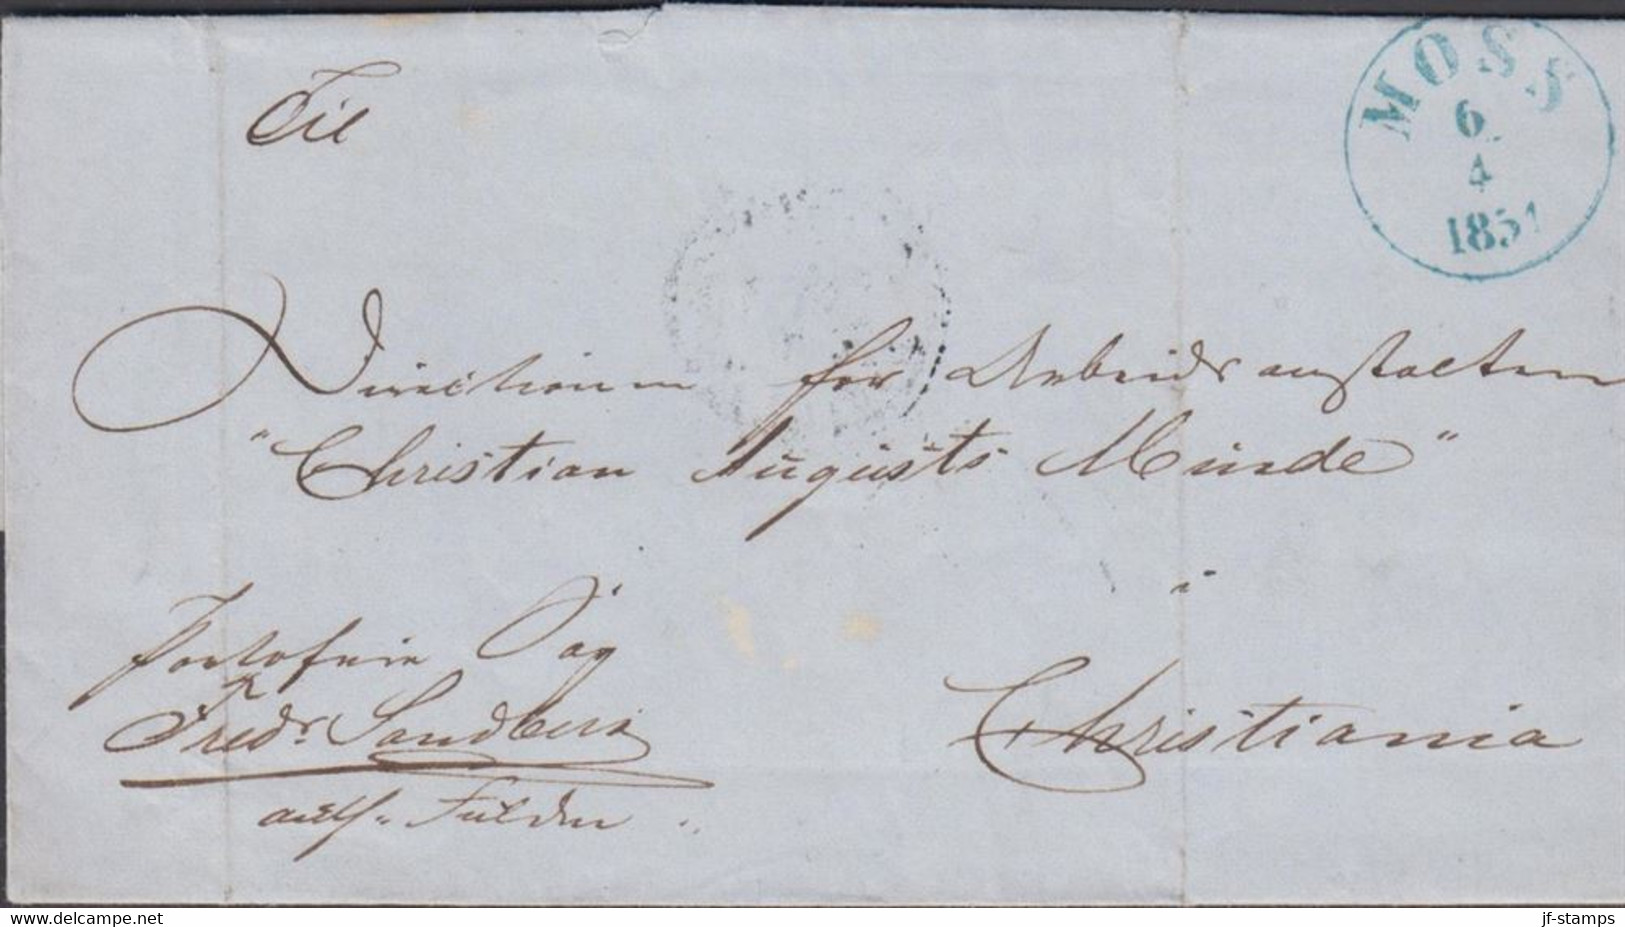 Til
MOSS
6
4
1851
Directionen for Arbeidsanstalten
"Christian Augusts Minde"
i
Christiania
portofrie Sag
Fredr. Sandberg
www.delcampe.net
jf-stamps